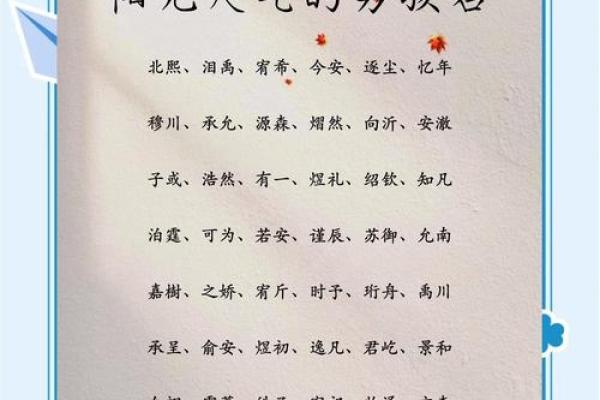 阳光大气的男孩名
北熙、泪禹、宥希、今安、逐尘、忆年
穆川、承允、源森、熠然、向沂、安澈
子或、浩然、有一、煜礼、绍钦、知凡
泊霆、可为、若安、谨辰、苏御、允南
嘉樹、之娇、宥斤、时予、珩舟、禹川
承呈、俞安、煜初、逸凡、君屹、景和